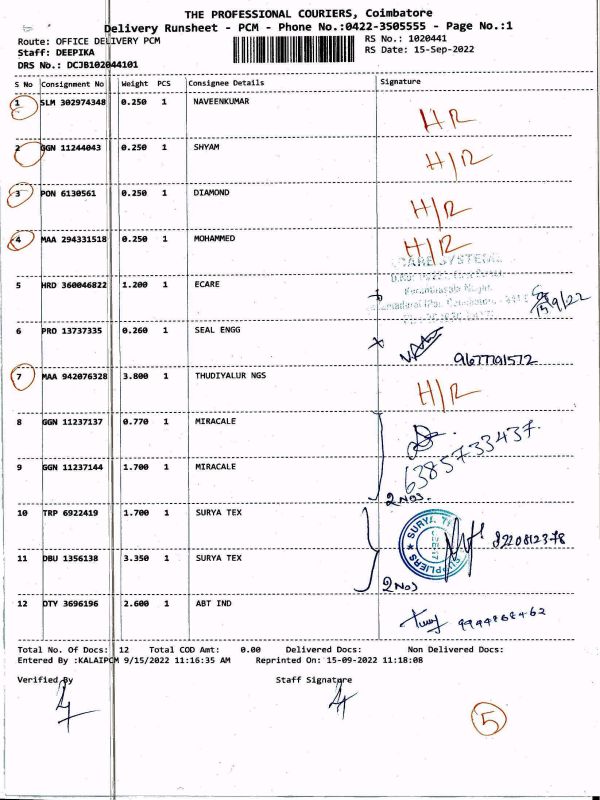 THE PROFESSIONAL COURIERS, Coimbatore
Delivery Runsheet - PCM - Phone No.:0422-3505555 - Page No.:1
Route: OFFICE DELIVERY PCM RS No.: 1020441
Staff: DEEPIKA RS Date: 15-Sep-2022
DRS No.: DCJB102044101
S No Consignment No Weight PCS Consignee Details Signature
1 SLM 302974348 0.250 1 NAVEENKUMAR H/R
2 GGN 11244043 0.250 1 SHYAM H/R
3 PON 6130561 0.250 1 DIAMOND H/R
4 MAA 294331518 0.250 1 MOHAMMED H/R
ECARE SYSTEMS
5 HRD 360046822 1.200 1 ECARE 15/9/22
6 PRO 13737335 0.260 1 SEAL ENGG 9677791572
7 MAA 942076328 3.800 1 THUDIYALUR NGS H/R
8 GGN 11237137 0.770 1 MIRACALE
9 GGN 11237144 1.700 1 MIRACALE 6385733437.
2 Nos.
10 TRP 6922419 1.700 1 SURYA TEX 8220812378
11 DBU 1356138 3.350 1 SURYA TEX
2 Nos
12 OTY 3696196 2.600 1 ABT IND 9994868462
Total No. Of Docs: 12 Total COD Amt: 0.00 Delivered Docs: Non Delivered Docs:
Entered By :KALAIPCM 9/15/2022 11:16:35 AM Reprinted On: 15-09-2022 11:18:08
Verified By Staff Signature
5